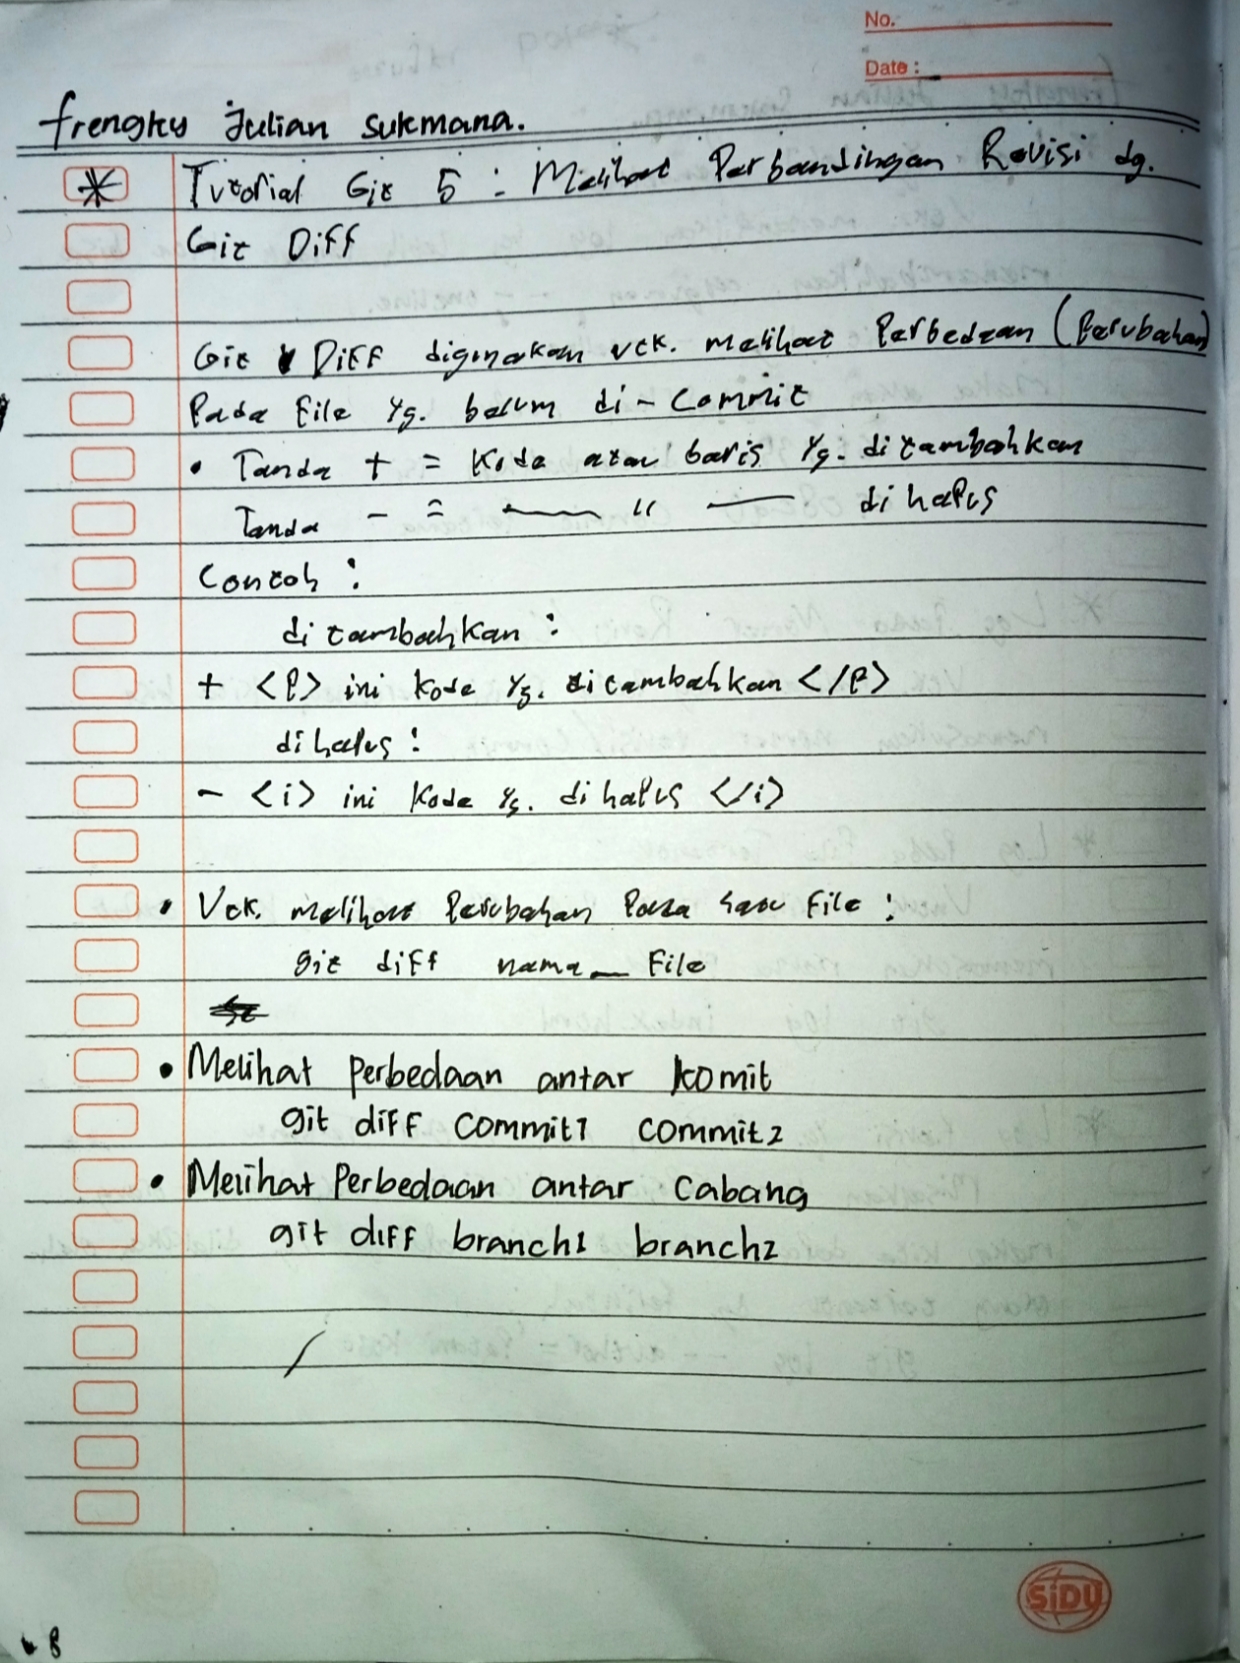 No.
Date :
frengky Julian sukmana.
* Tutorial Git 5 : Melihat Perbandingan Revisi dg.
Git Diff
Git Diff digunakan utk. melihat Perbedaan (Perubahan)
Pada File yg. belum di - Commit
• Tanda + = Kode atau baris yg. ditambahkan
Tanda - = —— " —— dihapus
Contoh :
ditambahkan :
+ <P> ini kode yg. ditambahkan </P>
dihapus :
- <i> ini kode yg. dihapus </i>
• Utk. melihat Perubahan Pada satu File :
git diff nama_File
• Melihat Perbedaan antar komit
git diff commit1 commit2
• Melihat Perbedaan antar Cabang
git diff branch1 branch2
SiDU